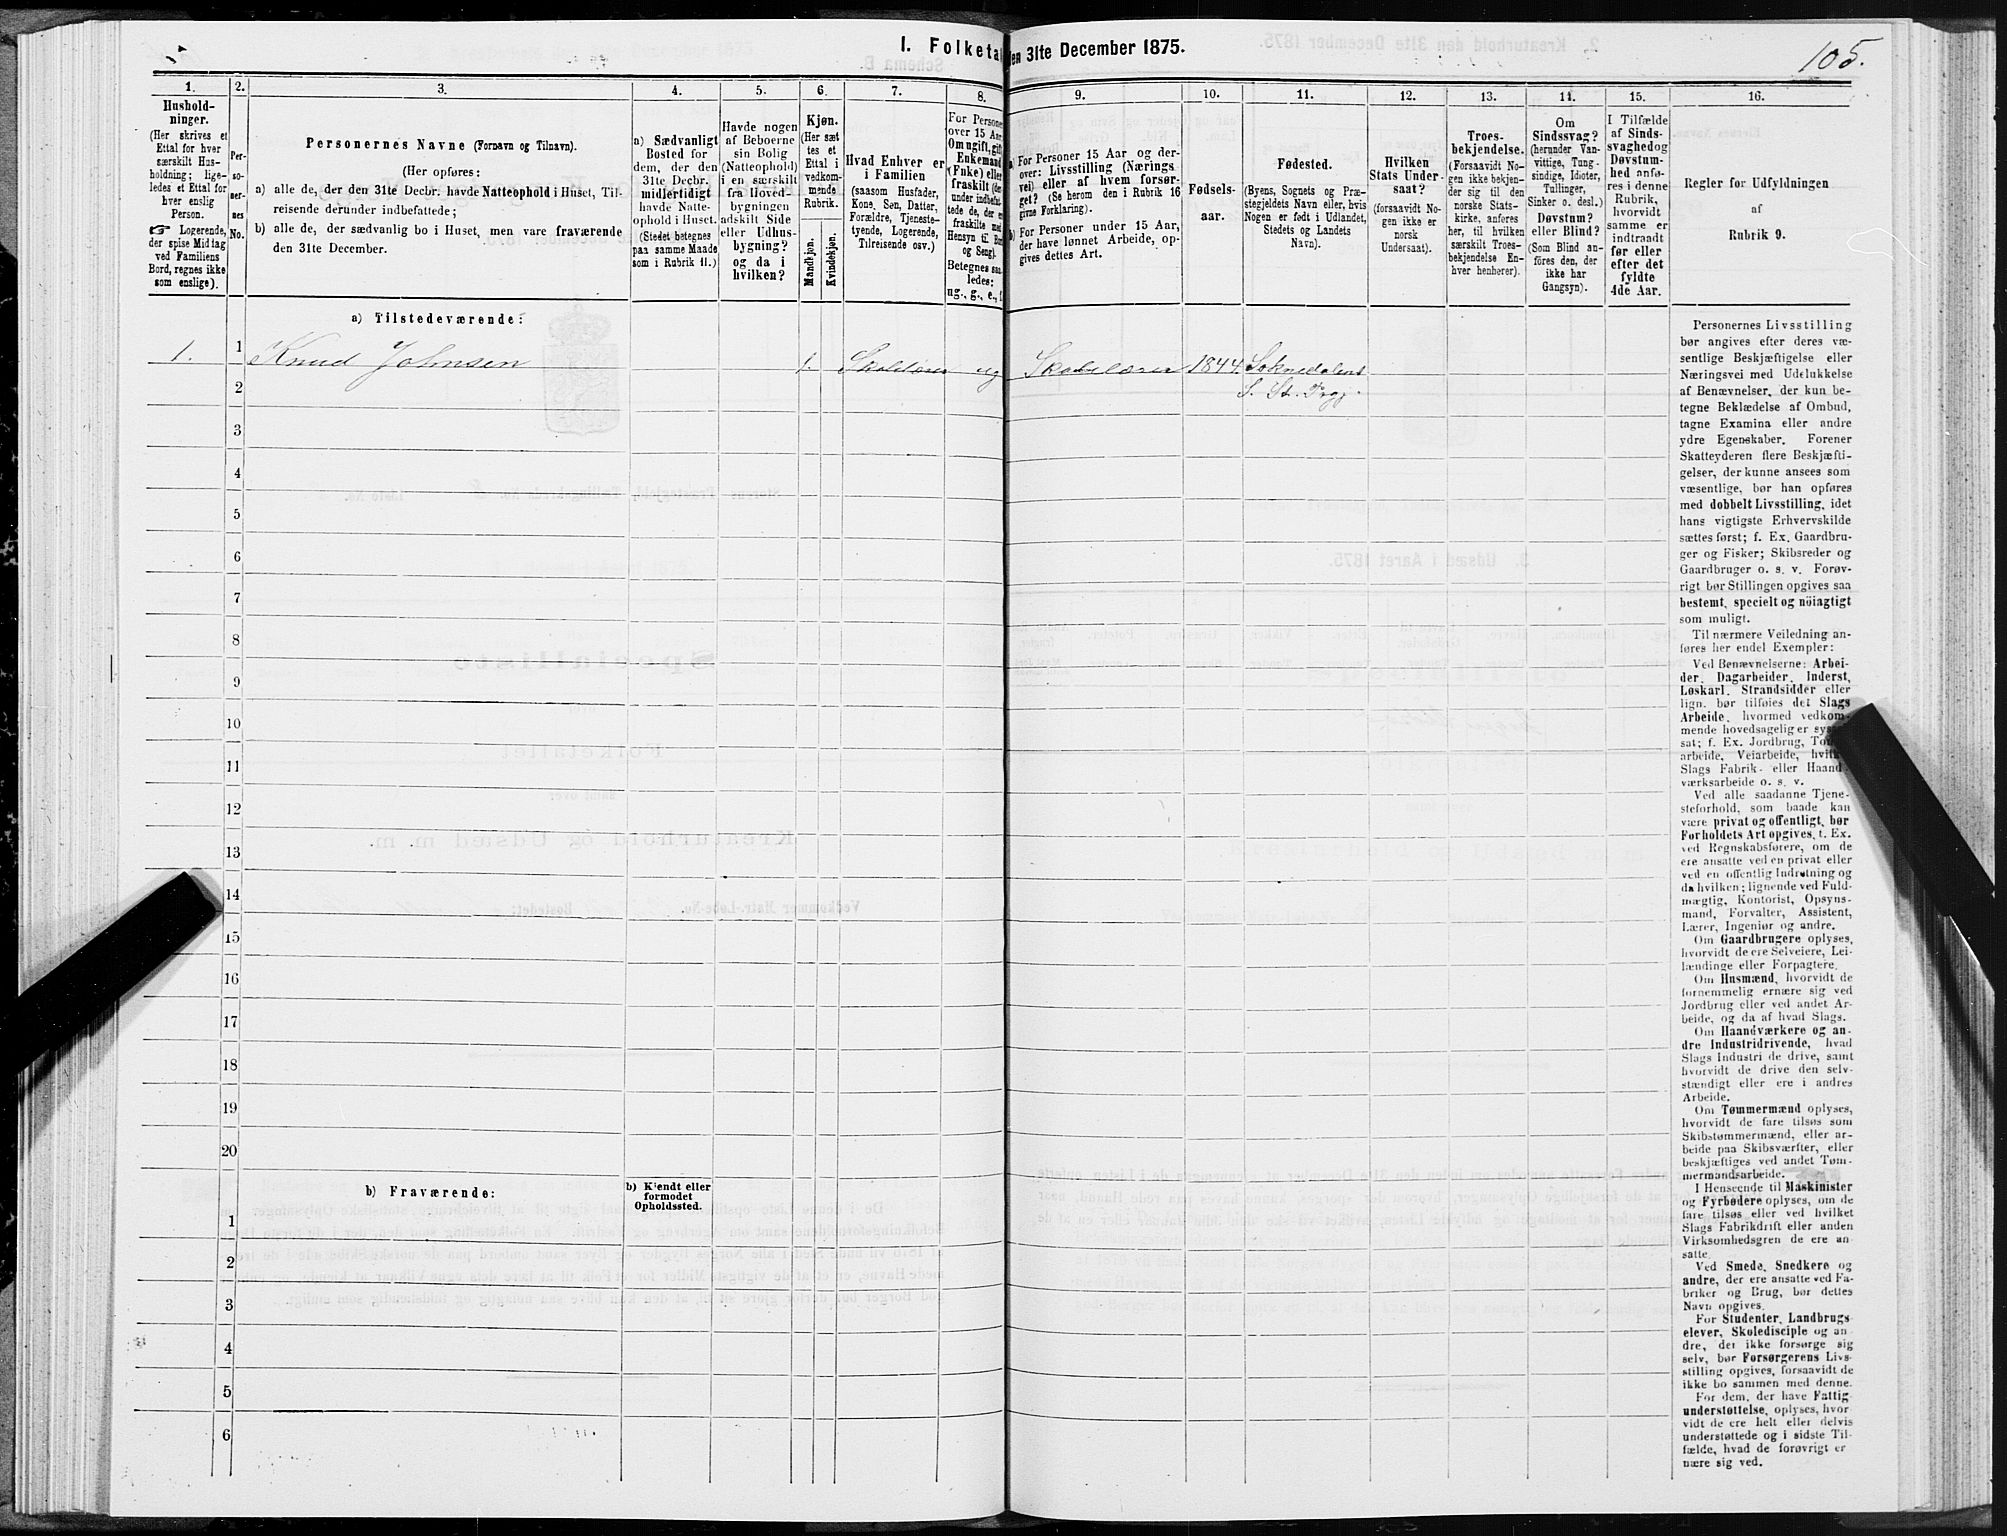 I. Folketal den 31te December 1875.
105.
1.
Hushold-
ninger.
(Her skrives et
Ettal for hver
særskilt Hus-
holdning; lige-
ledes et Ettal for
hver enslig
Person.
☞ Logerende,
der spise Middag
ved Familiens
Bord, regnes ikke
som enslige).
2.
Per-
so-
ner-
nes
No.
3.
Personernes Navne (Fornavn og Tilnavn).
(Her opføres:
a) alle de, der den 31te Decbr. havde Natteophold i Huset, Til-
reisende derunder indbefattede;
b) alle de, der sædvanlig bo i Huset, men vare fraværende
den 31te December.
4.
a) Sædvanligt
Bosted for
dem, der den
31te Decbr.
midlertidigt
havde Natte-
ophold i Huset.
(Stedet betegnes
paa samme Maade
som i Rubrik 11.)
5.
Havde nogen
af Beboerne
sin Bolig
(Natteophold)
i en særskilt
fra Hoved-
bygningen
adskilt Side
eller Udhus-
bygning?
og da i
hvilken?
6.
Kjøn.
(Her sæt
tes et
Ettal i
vedkom-
mende
Rubrik.
Mandkjøn.
Kvindekjøn.
7.
Hvad Enhver er
i Familien
(saasom Husfader,
Kone, Søn, Datter,
Forældre, Tjeneste-
tyende, Logerende,
Tilreisende osv.)
8.
For Personer
over 15 Aar
Om ugift, gift
Enkemand
(Enke) eller
fraskilt (der
under indbefat-
tede de, der ere
fraskilte med
Hensyn til Bord
og Seng).
Betegnes saa
ledes:
ug., g., e., f.
9.
a) For Personer 15 Aar og der-
over: Livsstilling (Nærings
vei) eller af hvem forsør-
get? (Se herom den i Rubrik 16
givne Forklaring).
b) For Personer under 15 Aar,
der have lønnet Arbeide, op-
gives dettes Art.
10.
Fødsels-
aar.
11.
Fødested.
(Byens, Sognets og Præ-
stegjeldets Navn eller, hvis
Nogen er født i Udlandet,
Stedets og Landets
Navn).
12.
Hvilken
Stats Under-
saat?
(forsaavidt No-
gen ikke er
norsk
Undersaat).
13.
Troes-
bekjendelse.
(Forsaavidt No-
gen ikke bekjen-
der sig til den
norske Stats-
kirke, anføres
her, til hvilken
særskilt Troes-
bekjendelse En-
hver henhører).
14.
Om
Sindssvag?
(herunder Van-
vittige, Tung-
sindige, Idioter,
Tullinger,
Sinker o. desl.)
Døvstum?
eller Blind?
(Som Blind an-
føres den, der
ikke har
Gangsyn).
15.
I Tilfælde
af Sinds-
svaghed og
Døvstum-
hed anfø-
res i denne
Rubrik,
hvorvidt
samme er
indtraadt
før eller
efter det
fyldte
4de Aar.
16.
Regler for Udfyldningen
af
Rubrik 9.
a) Tilstedeværende:
1. 1 Knud Johnsen 1. Skolelærer ug Skolelærer 1844 Soknedalens
S. St. Prgj.
2
3
4
5
6
7
8
9
10
11
12
13
14
15
16
17
18
19
20
b) Fraværende:
b) Kjendt eller
formodet
Opholdssted.
1
2
3
4
5
6
Personernes Livsstilling
bør angives efter deres væ-
sentlige Beskjæftigelse eller
Næringsvei med Udelukkelse
af Benævnelser, der kun be-
tegne Beklædelse af Ombud,
tagne Examina eller andre
ydre Egenskaber. Forener
Skatteyderen flere Beskjæfti-
gelser, der kunne ansees som
væsentlige, bør han opføres
med dobbelt Livsstilling, idet
hans vigtigste Erhvervskilde
sættes først; f. Ex. Gaardbru-
ger og Fisker; Skibsreder og
Gaardbruger o. s. v. Forøv-
rigt bør Stillingen opgives saa
bestemt, specielt og nöiagtigt
som muligt.
Til nærmere Veiledning an-
føres her endel Exempler:
Ved Benævnelserne: Arbei-
der, Dagarbeider, Inderst,
Løskarl, Strandsidder eller
lign. bør tilføies det Slags
Arbeide, hvormed vedkom-
mende hovedsagelig er syssel-
sat; f. Ex. Jordbrug, Tømmer-
arbeide, Veiarbeide, hvilket
Slags Fabrik- eller Haand-
værksarbeide o. s. v.
Ved alle saadanne Tjene-
steforhold, som baade kan
være privat og offentligt, bør
Forholdets Art opgives, t. Ex.
ved Regnskabsførere, om de
ere ansatte ved en privat eller
ved en offentlig Indretning og
da hvilken; lignende ved Fuld-
mægtig, Kontorist, Opsyns-
mand, Forvalter, Assistent,
Lærer, Ingeniør og andre.
Om Gaardbrugere oplyses,
hvorvidt de ere Selveiere, Lei-
lændinge eller Forpagtere.
Om Husmænd, hvorvidt de
fornemmelig ernære sig ved
Jordbrug eller ved andet Ar-
beide, og da af hvad Slags.
Om Haandværkere og an-
dre Industridrivende, hvad
Slags Industri de drive, samt
hvorvidt de drive den selv-
stændigt eller ere i andres
Arbeide.
Om Tømmermænd oplyses,
hvorvidt de fare tilsøs som
Skibstømmermænd, eller ar-
beide paa Skibsværfter, eller
beskjæftiges ved andet Tøm-
mermandsarbeide.
I Henseende til Maskinister
og Fyrbødere oplyses, om de
fare tilsøs eller ved hvilket
Slags Fabrikdrift eller anden
Virksomhedsgren de ere an-
satte.
Ved Smede, Snedkere og
andre, der ere ansatte ved Fa-
briker og Brug, bør dettes
Navn opgives.
For Studenter, Landbrugs-
elever, Skoledisciple og an
dre, der ikke forsørge sig
selv, bør Forsørgerens Livs-
stilling opgives, forsaavidt de
ikke bo sammen med denne.
For dem, der have Fattig-
understøttelse, oplyses, hvor-
vidt de ere helt eller delvis
understøttede og i sidste Til-
fælde, hvad de forøvrigt er-
nære sig ved.